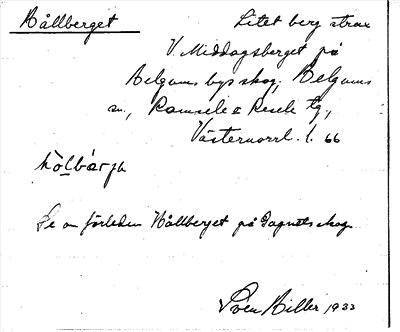 Hållberget
Litet berg strax
V. Middagsberget på
Helgums bys skog, Helgums
sn, Ramsele & Resele tg,
Västernorrl. l. 66
Se om förleden Hållberget på skog.
Sven Hiller 1933